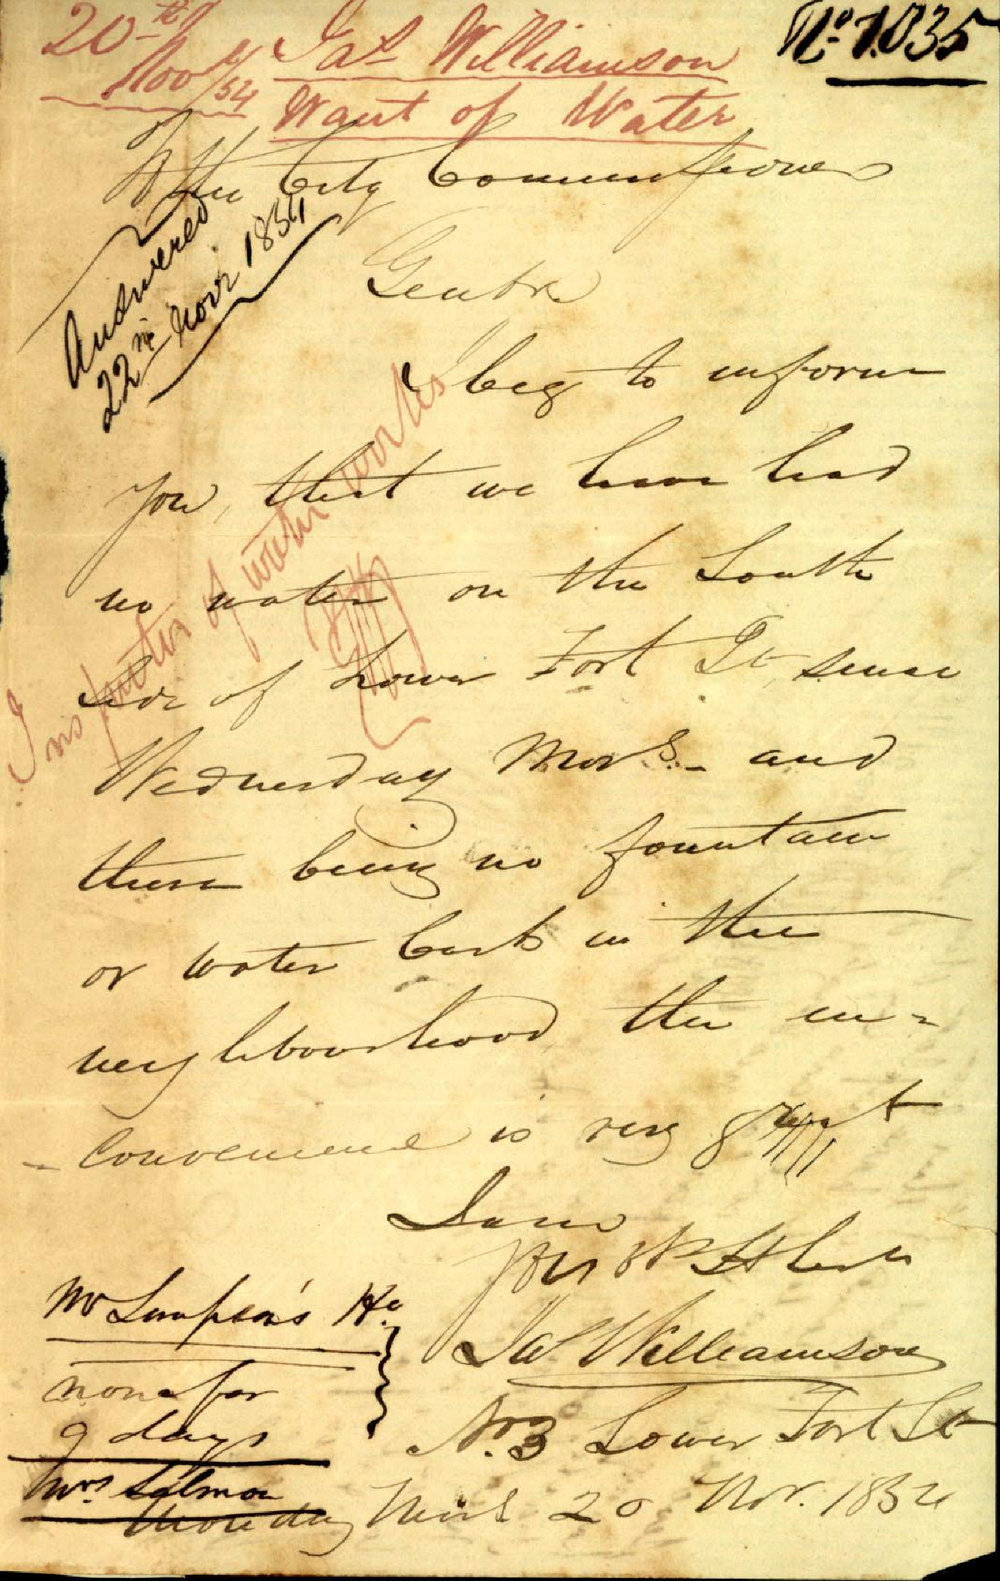 20th
Nov /54
Jas Williamson
Want of Water
No 1.035
To the City Commissioners
Answered
22nd Novr 1854
Gentn
I beg to inform
you, that we have had
no water on the South
Side of Lower Fort St, since
Wednesday Mors. - and
there being no fountain
or water cart in the
neighbourhood the in=
- convenience is very great
Inspector of water works
I am
Jas Williamson
No. 3 Lower Fort St
Monday 20 Nov. 1854
Mr Simpson's Ho.
none for
9 days
Mrs. Salmon